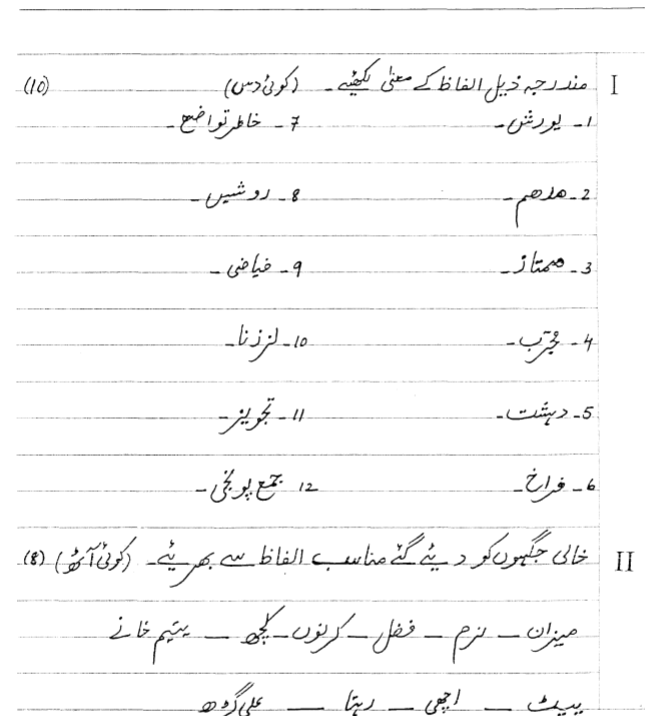 I مندرجہ ذیل الفاظ کے معنی لکھئیے ۔ (کوئی دس) (10)
1۔ یورش۔ 7۔ خاطر تواضع۔
2۔ مدھم۔ 8۔ روشیں۔
3۔ ممتاز۔ 9۔ فیاضی۔
4۔ مجرّب۔ 10۔ لرزنا۔
5۔ دہشت۔ 11۔ تجویز۔
6۔ فراخ۔ 12 جمع پونجی۔
II خالی جگہوں کو دیئے گئے مناسب الفاظ سے بھریئے۔ (کوئی آٹھ) (8)
میزان ۔ نرم ۔ فضل ۔ کرنوں ۔ کچھ ۔ یتیم خانے
پیٹ ۔ اچھی ۔ رہتا ۔ علی گڑھ